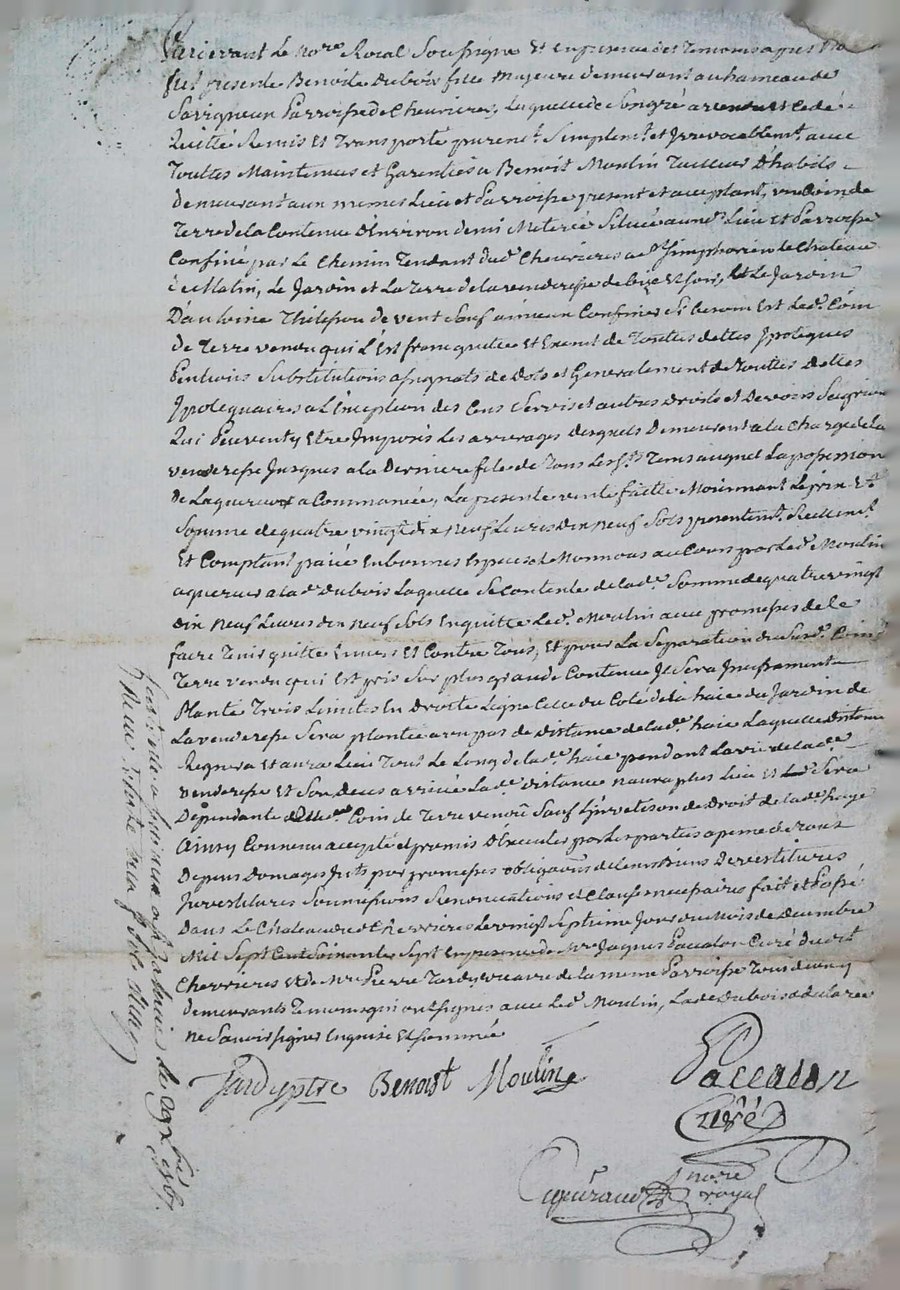 Pardevant Le no.re Royal Soussigné Et en presence des Temoins apres
fut presente Benoite Dubois fille Majeure demeurant au hameau de
Savigneux Parroisse de Chevrieres, Laquelle de Son gré a vendu et Cedé
Quitté Remis Et Transporté purem.t Simplem.t et Irrevocablem.t avec
Touttes Maintenues et Garenties a Benoit Moulin Tailleur D'habits
demeurant aux mêmes Lieu et Parroisse present et acceptant, un Coin de
Terre de la Contenue D'Environ demi Meterée Située aud. Lieu et Parroisse
Confiné par Le Chemin Tendant dud. Chevrieres a S.t Simphorien le Chateau
de Matin, Le Jardin et La Terre de la venderesse de bize Et Soir, Et Le Jardin
D'antoine Thilipon de vent Sauf ainieux Confiner Si besoin Est Led. Coin
de Terre vendu qui L'Est franq quitte Et Exemt de Touttes dettes Ipoteques
Pentions Substitutions assignats de Dots et Generalement de Touttes Dettes
Ipotequaires a L'Exeption des Cens Servis et autres Droits et Devoirs Seigrieux
Qui Peuvent y Etre Imposés Les arrerages desquels demeurent a la Charge de la
venderesse Jusques a la Derniere fête de Tous Les S.ts Tems auquel La possession
de Laquereur a Commancée, La presente vente faitte Moiennant Le prix Et
Somme de quatre vingt dix neuf Livres dix neuf Sols presentem.t Reellem.t
Et Comptant paiée En bonnes Especes et Monnoies au Cours par Led. Moulin
aquereur a lad. Dubois Laquelle Se Contente de lad. Somme de quatre vingt
dix neuf Livres dix neuf Sols En quitte Led. Moulin avec promesses de le
faire Tenir quitte Envers Et Contre Tous, Et pour La Separation du Surd. Coin
Terre vendu qui Est pris Sur plus grande Contenue Il Sera
Planté Trois Limites En Droite Ligne Celle du Coté de la haie du Jardin de
La venderesse Sera plantée a un pas de distance de lad. haie Laquelle distance
Regnera Et aura Lieu Tout Le Long de lad. haie pendant La vie de lad.
venderesse Et Son deces arrivé Lad. distance n'aura plus Lieu Et Sera
Dépendante Coin de Terre vendu Sauf de Droit de lad. haye
Ainsy Convenu accepté et promis D'Executer par Les parties a peine de Tous
Depens Domages Int.s par promesses obligations de Leurs Biens Devestitures
Investitures Soumissions Renonciations et Clauses necessaires fait et Passé
Dans Le Chateau de Chevrieres Le vingt Septieme Jour du Mois de Decembre
Mil Sept Cent Soixante Sept En presence de M.re Jaques Paccalon Curé dudit
Chevrieres Et de M.re Pierre Tardy, vicaire de la meme Parroisse Tous deux y
demeurants Temoins qui ont Signés avec Led. Moulin, Lad. Dubois a declaré
ne Savoir Signer Enquise Et Sommée
Tardy ptre Benoist Moulin Paccalon
Curé
nore
royal